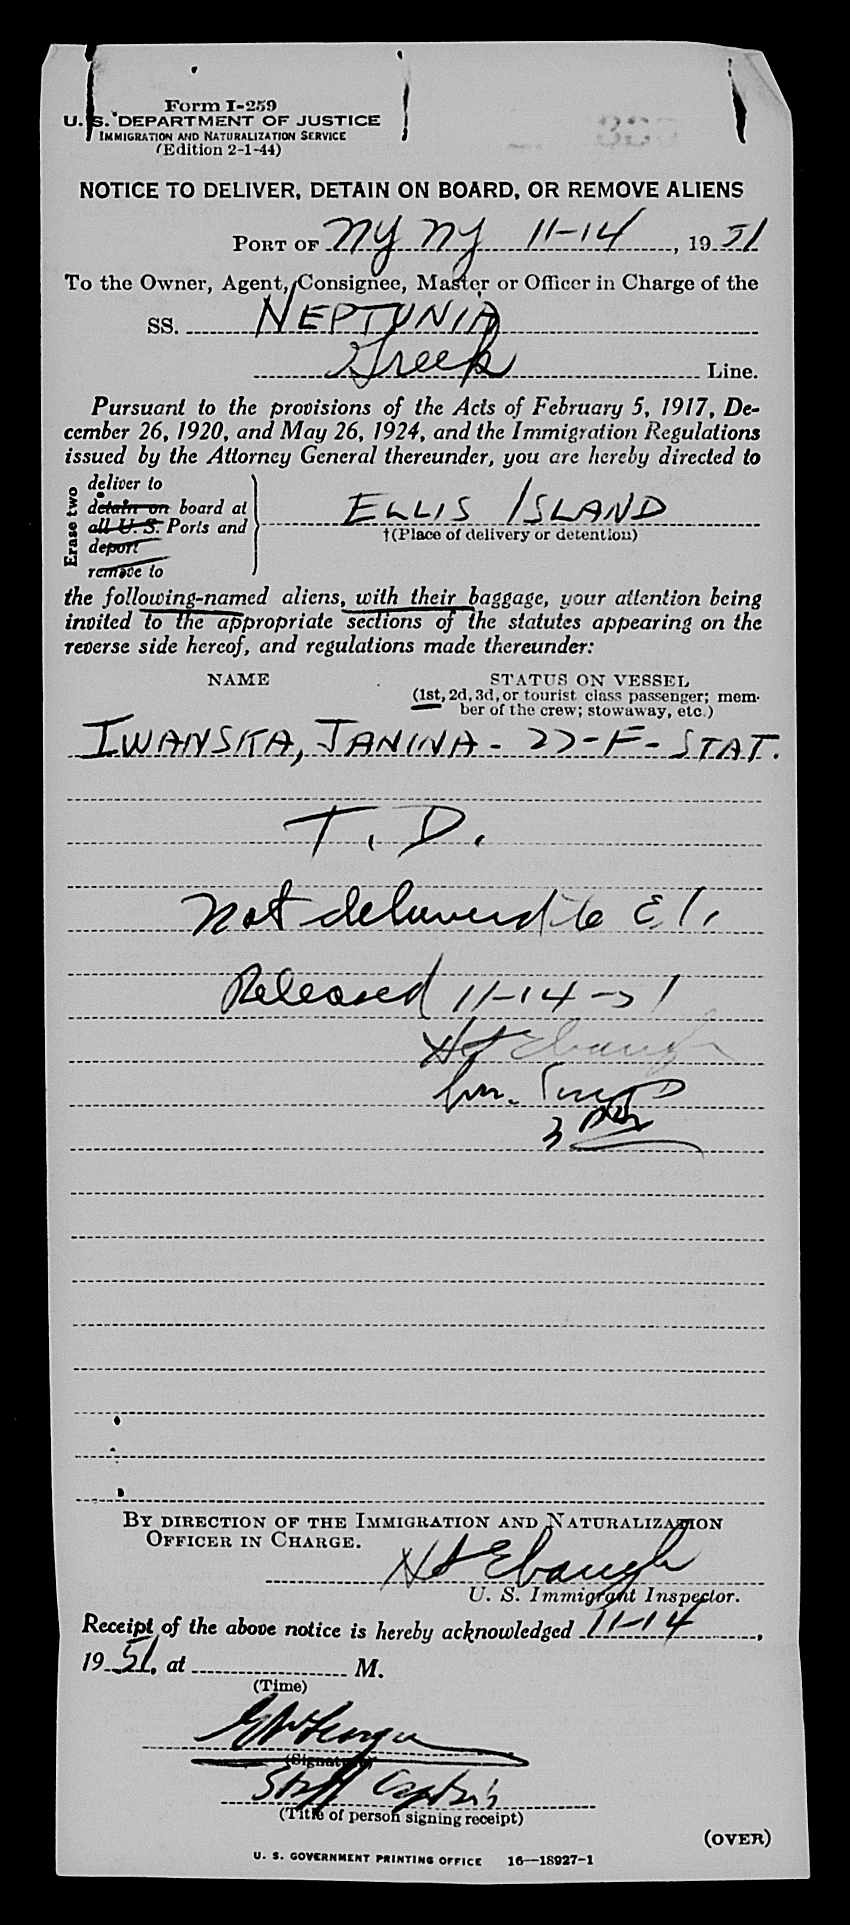 Form I-259
U. S. DEPARTMENT OF JUSTICE
IMMIGRATION AND NATURALIZATION SERVICE
(Edition 2-1-44)
NOTICE TO DELIVER, DETAIN ON BOARD, OR REMOVE ALIENS
PORT OF NY NY 11-14, 1951
To the Owner, Agent, Consignee, Master or Officer in Charge of the
SS. NEPTUNIA
Greek Line.
Pursuant to the provisions of the Acts of February 5, 1917, De-
cember 26, 1920, and May 26, 1924, and the Immigration Regulations
issued by the Attorney General thereunder, you are hereby directed to
Erase two
deliver to
detain on board at
all U. S. Ports and
deport
remove to
ELLIS ISLAND
†(Place of delivery or detention)
the following-named aliens, with their baggage, your attention being
invited to the appropriate sections of the statutes appearing on the
reverse side hereof, and regulations made thereunder:
NAME STATUS ON VESSEL
(1st, 2d, 3d, or tourist class passenger; mem-
ber of the crew; stowaway, etc.)
IWANSKA, JANINA - 27-F-STAT.
T. D.
Not delivered to E. I.
Released 11-14-51
H Ebaugh
Imm. Insp
BY DIRECTION OF THE IMMIGRATION AND NATURALIZATION
OFFICER IN CHARGE.
H Ebaugh
U. S. Immigrant Inspector.
Receipt of the above notice is hereby acknowledged 11-14,
1951, at M.
(Time)
(Signature)
Staff Captain
(Title of person signing receipt)
(OVER)
U. S. GOVERNMENT PRINTING OFFICE 16—18927-1